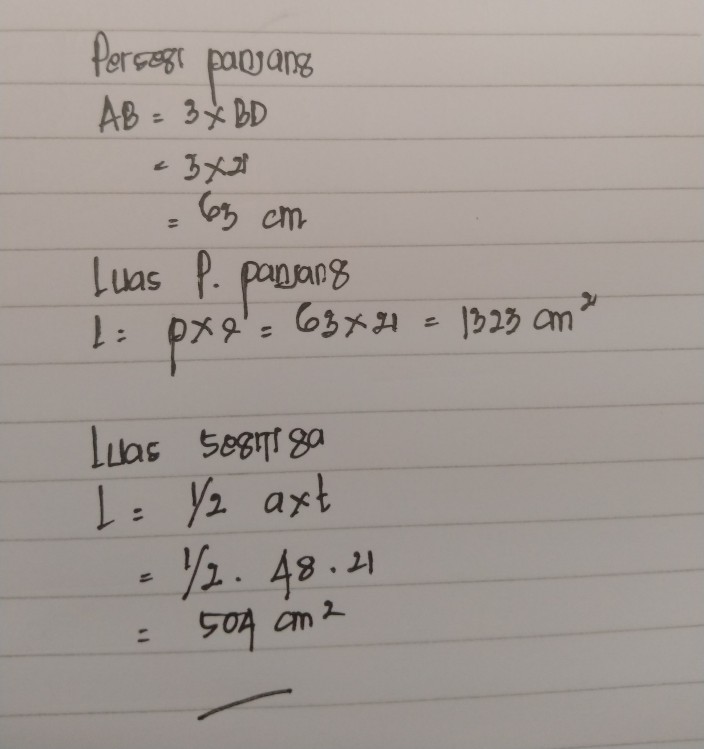 Persegi panjang
AB = 3 x BD
= 3 x 21
= 63 cm
Luas P. panjang
L = p x l = 63 x 21 = 1323 cm²
Luas segitiga
L = 1/2 a x t
= 1/2 . 48 . 21
= 504 cm²